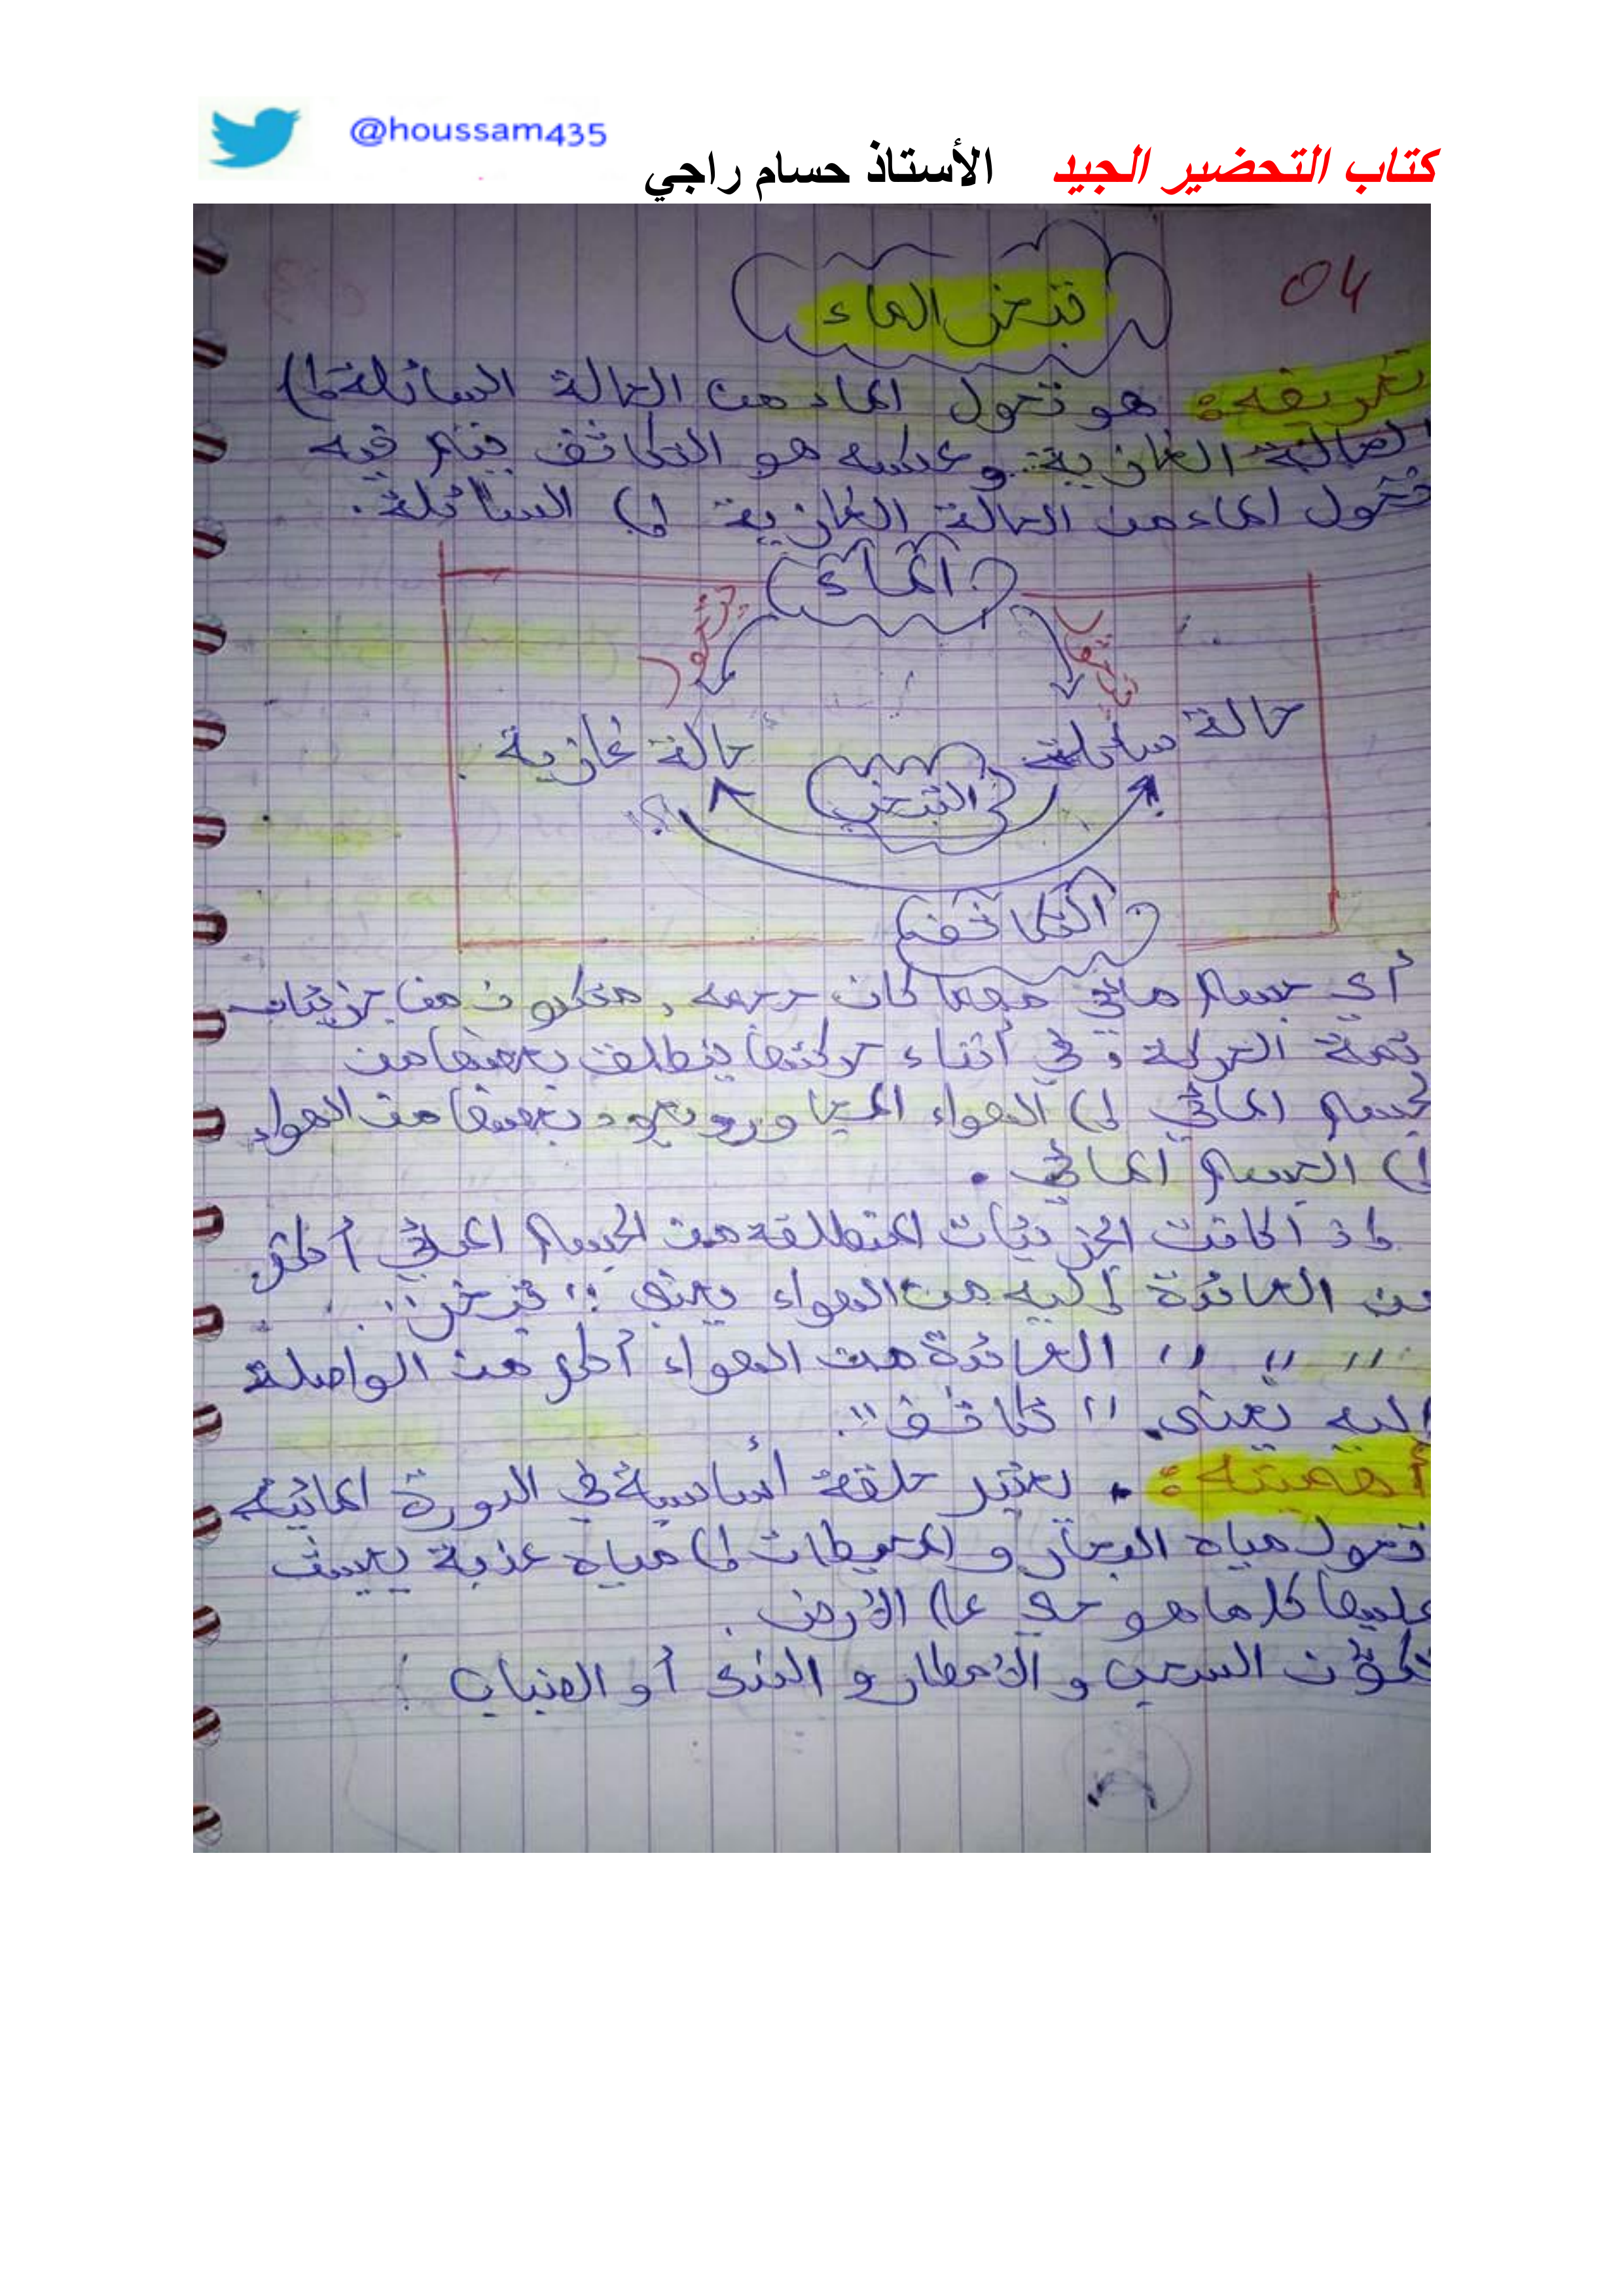 @houssam435
كتاب التحضير الجيد الأستاذ حسام راجي
04
تبخر الماء
تعريفه: هو تحول الماء من الحالة السائلة إلى
الحالة الغازية وعكسه هو التكاثف يتم فيه
تحول الماء من الحالة الغازية إلى السائلة.
الماء
حالة سائلة
حالة غازية
التبخر
التكاثف
أي جسم مائي مهما كان حجمه, متكون من جزيئات
الحركة, في أثناء حركتها ينطلق بعضها من
لجسم المائي إلى الهواء المجاور و يعود بعضها من الهواء
إلى الجسم المائي.
إذا كانت الجزيئات المنطلقة من الجسم المائي أكثر
من العائدة إليه من الهواء يعني "تبخر".
" " " العائدة من الهواء أكثر من الواصلة
إليه يعني "تكاثف".
أهميته: . يعتبر حلقة أساسية في الدورة المائية
تحول مياه البحار و المحيطات إلى مياه عذبة يعيش
عليها كل ما هو حي على الأرض.
تكوّن السحب و الأمطار و الندى أو الضباب